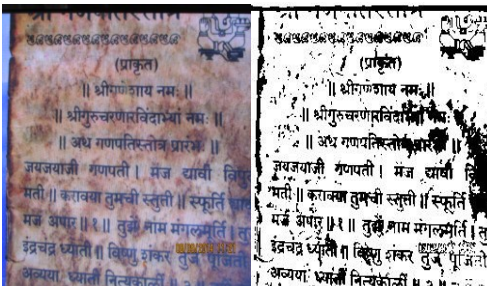 (प्राकृत)
॥ श्रीगणेशाय नमः ॥
॥ श्रीगुरुचरणारविंदाभ्यां नमः ॥
॥ अथ गणपतिस्तोत्र प्रारंभः ॥
जयजयाजी गणपती । मज द्यावी
मती ॥ करावया तुमची स्तुती ॥ स्फूर्ति
मज अपार ॥ १ ॥ तुझें नाम मंगलमूर्ति ।
इंद्रचंद्र ध्याती । विष्णु शंकर तुज पूजिती
अव्यया ध्याती नित्यकाळीं ॥
(प्राकृत)
॥ श्रीगणेशाय नमः ॥
॥ श्रीगुरुचरणारविंदाभ्यां नमः
॥ अथ गणपतिस्तोत्र प्रारंभः
जयजयाजी गणपती । मज द्यावी
मती ॥ करावया तुमची स्तुती ॥ स्फूर्ति
मज अपार ॥ १ ॥ तुझें नाम मंगलमूर्ति ।
इंद्रचंद्र ध्याती । विष्णु शंकर तुज पूजिती
अव्यया ध्याती नित्यकाळीं